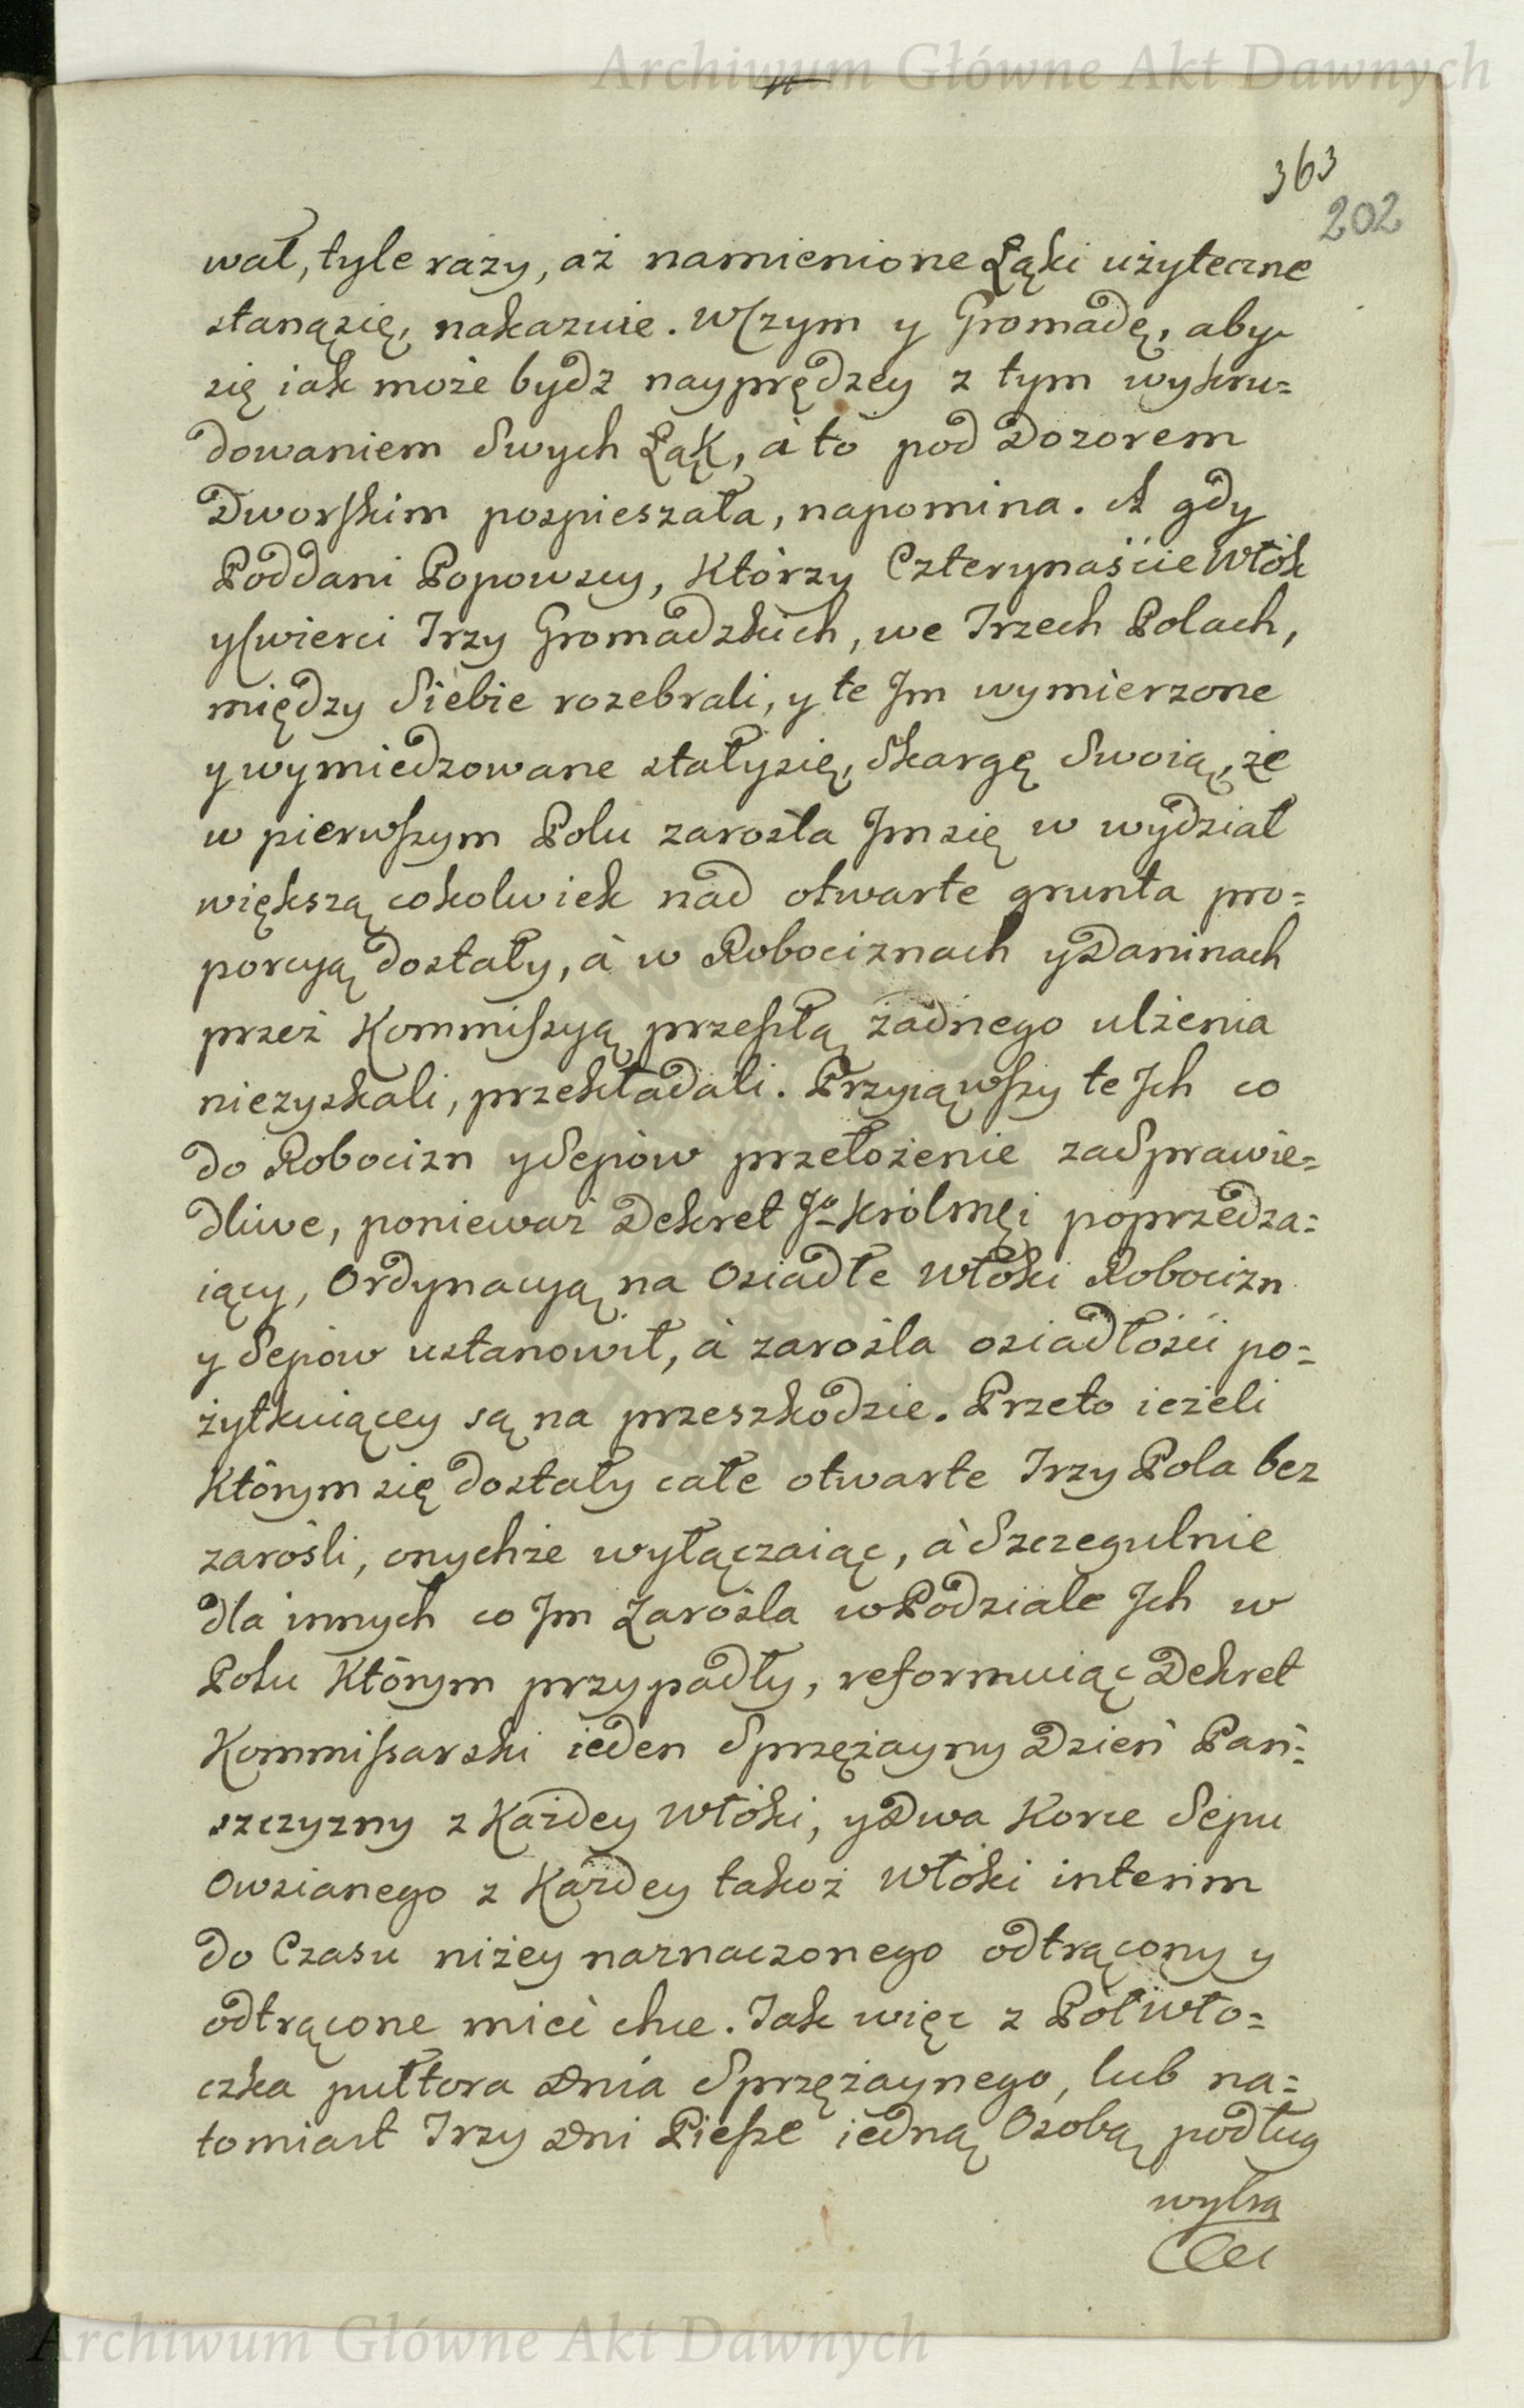 Archiwum Główne Akt Dawnych
363
202
wał, tyle razy, aż namienione Łąki użyteczne
staną się, nakazuie. W czym y Gromadę, aby
się iak może bydz nayprędzey z tym wykru=
dowaniem Swych Łąk, à to pod Dozorem
Dworskim pospieszała, napomina. A gdy
Poddani Popowscy, Którzy Czterynaście Włók
y Cwierci Trzy Gromadzkich, we Trzech Polach,
między Siebie rozebrali, y te Jm wymierzone
y wymiedzowane stały się, Skargę Swoią, że
w pierwszym Polu zarosla Jm się w wydział
większą cokolwiek nad otwarte grunta pro=
porcyą dostały, à w Robociznach y Daninach
przez Kommissyą przeszłą żadnego ulżenia
niezyskali, przekładali. Przyiąwszy te Jch co
do Robocizn y Sepów przełożenie za Sprawie=
dliwe, ponieważ Dekret Jo Królmci poprzedza=
iący, Ordynacyą na Osiadłe Włóki Robocizn
y Sepów ustanowił, à zarośla osiadłości po=
żytkuiącey są na przeszkodzie. Przeto ieżeli
Którym się dostały całe otwarte Trzy Pola bez
zarośli, onychże wyłączaiąc, à Szczegulnie
dla innych co Jm Zarośla w Podziale Jch w
Polu Którym przypadły, reformuiąc Dekret
Kommissarski ieden Sprzężayny Dzień Pań=
szczyzny z Każdey Włóki, y Dwa Korce Sepu
Owsianego z Każdey takoż Włóki interim
do Czasu niżey naznaczonego odtrącony y
odtrącone mieć chce. Tak więc z Półwło=
czka pułtora Dnia Sprzężaynego, lub na=
tomiast Trzy Dni Piesze iedną Osobą podług
wybra
Archiwum Główne Akt Dawnych